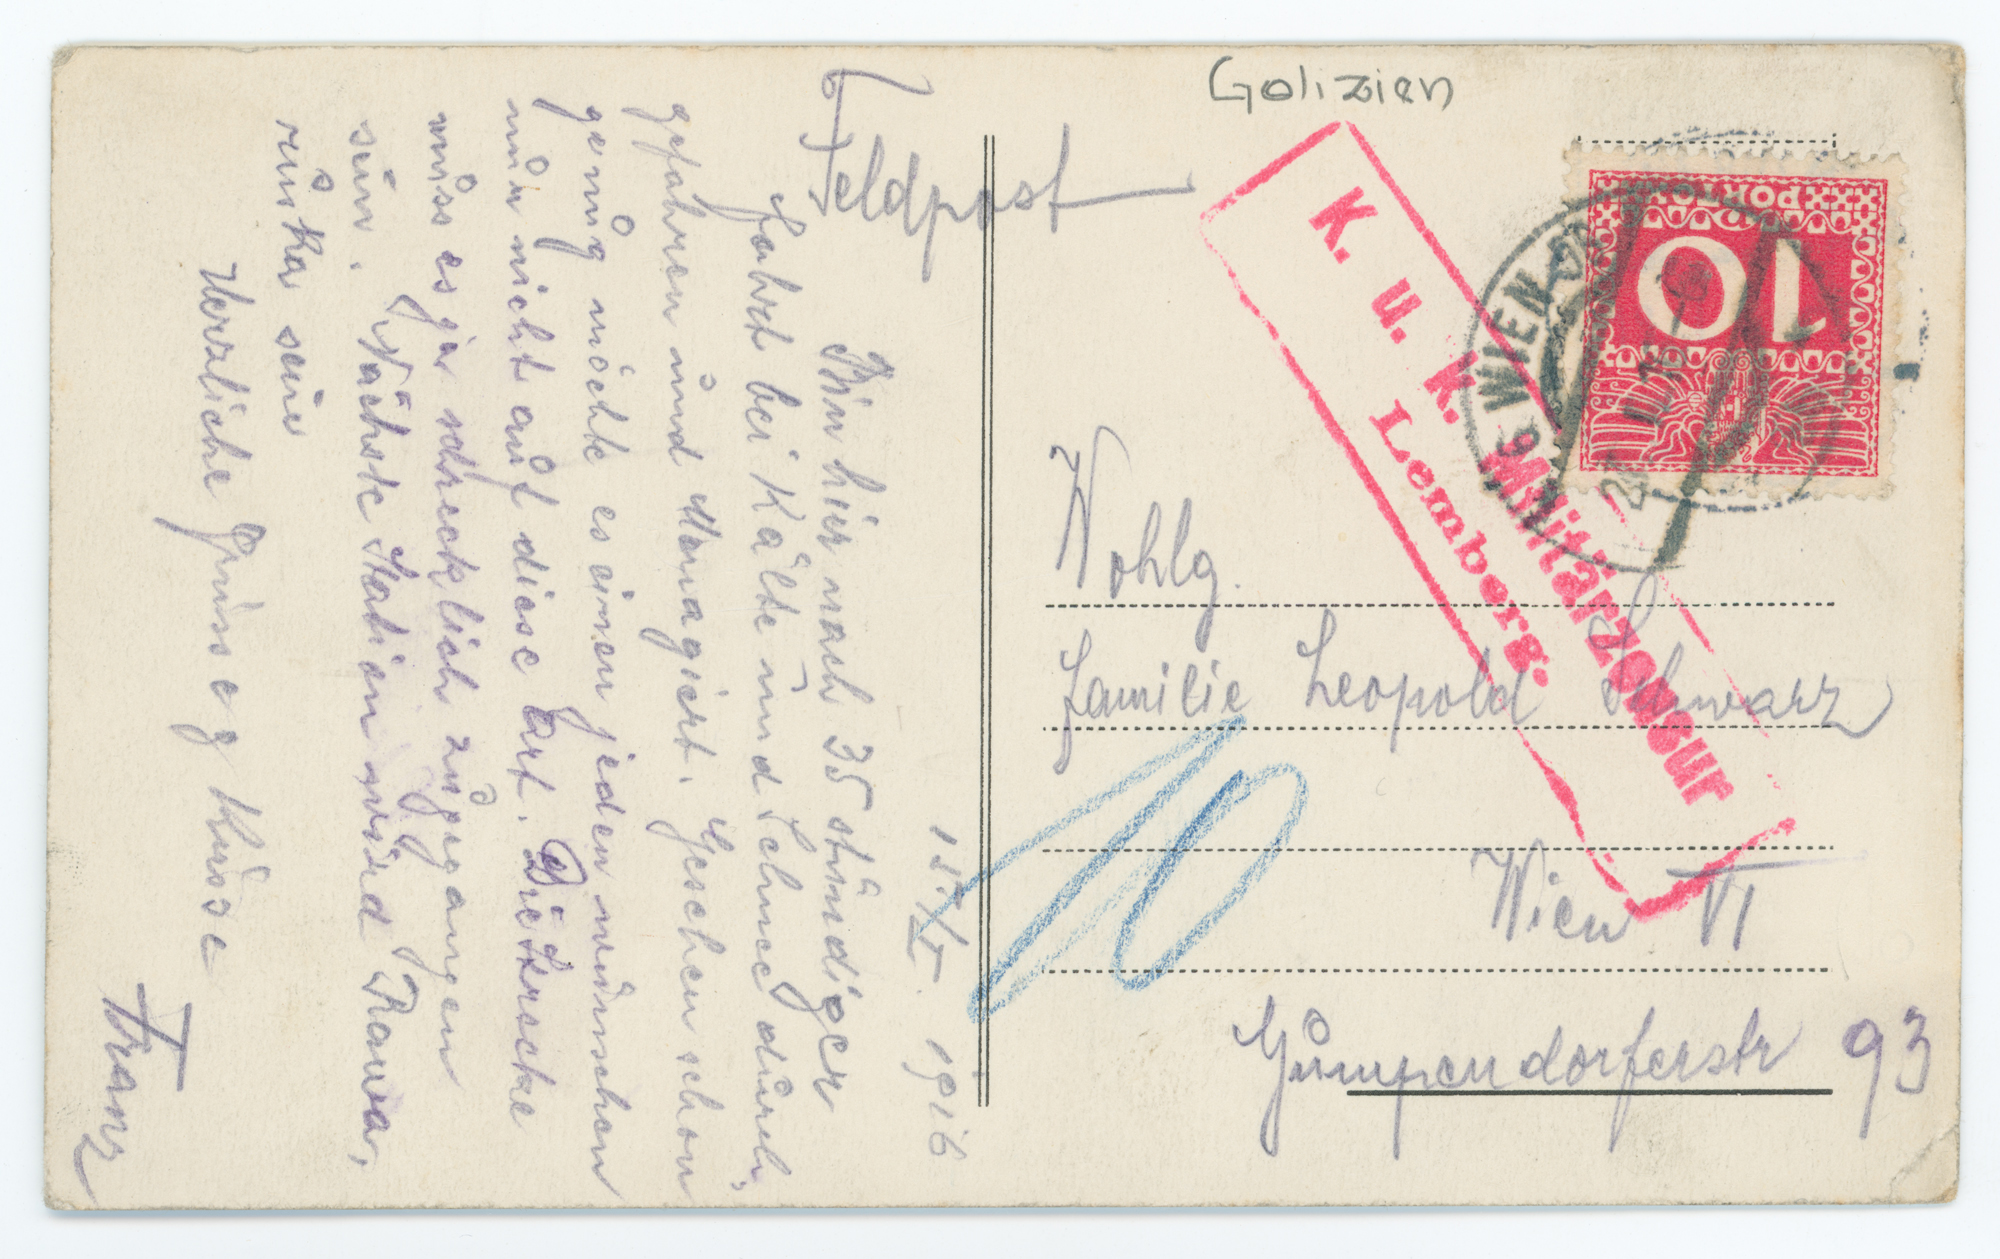 Golizien
Feldpost
15/I. 1916
Bin hier nach 35 stündiger
Fahrt bei Kälte und Schnee durch,
gefahren und Menagiert. Geschen schon
genug möchte es einen jeden wünschen
nur nicht auf diese Art. Die Strecke
muss es ja schrecklich zugegangen
sein. Nächste Station wird Rawa,
ruska sein
Herzliche Grüsse g Küsse
Franz
K. u. K. Militärzensur
Lemberg.
PORTO
10
WIEN
Wohlg.
Familie Leopold Schwarz
10
Wien VI
Gumpendorferstr 93